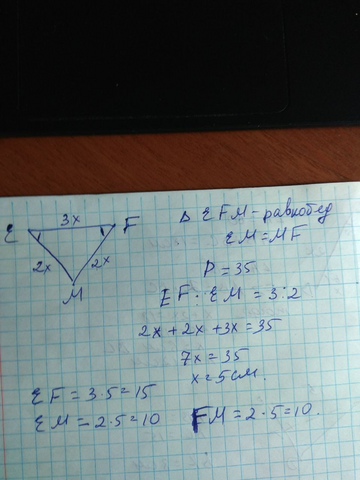 E 3x F
2x 2x
M
Δ EFM - равнобед
EM = MF
P = 35
EF : EM = 3:2
2x + 2x + 3x = 35
7x = 35
x = 5 см.
EF = 3·5 = 15
EM = 2·5 = 10 FM = 2·5 = 10.